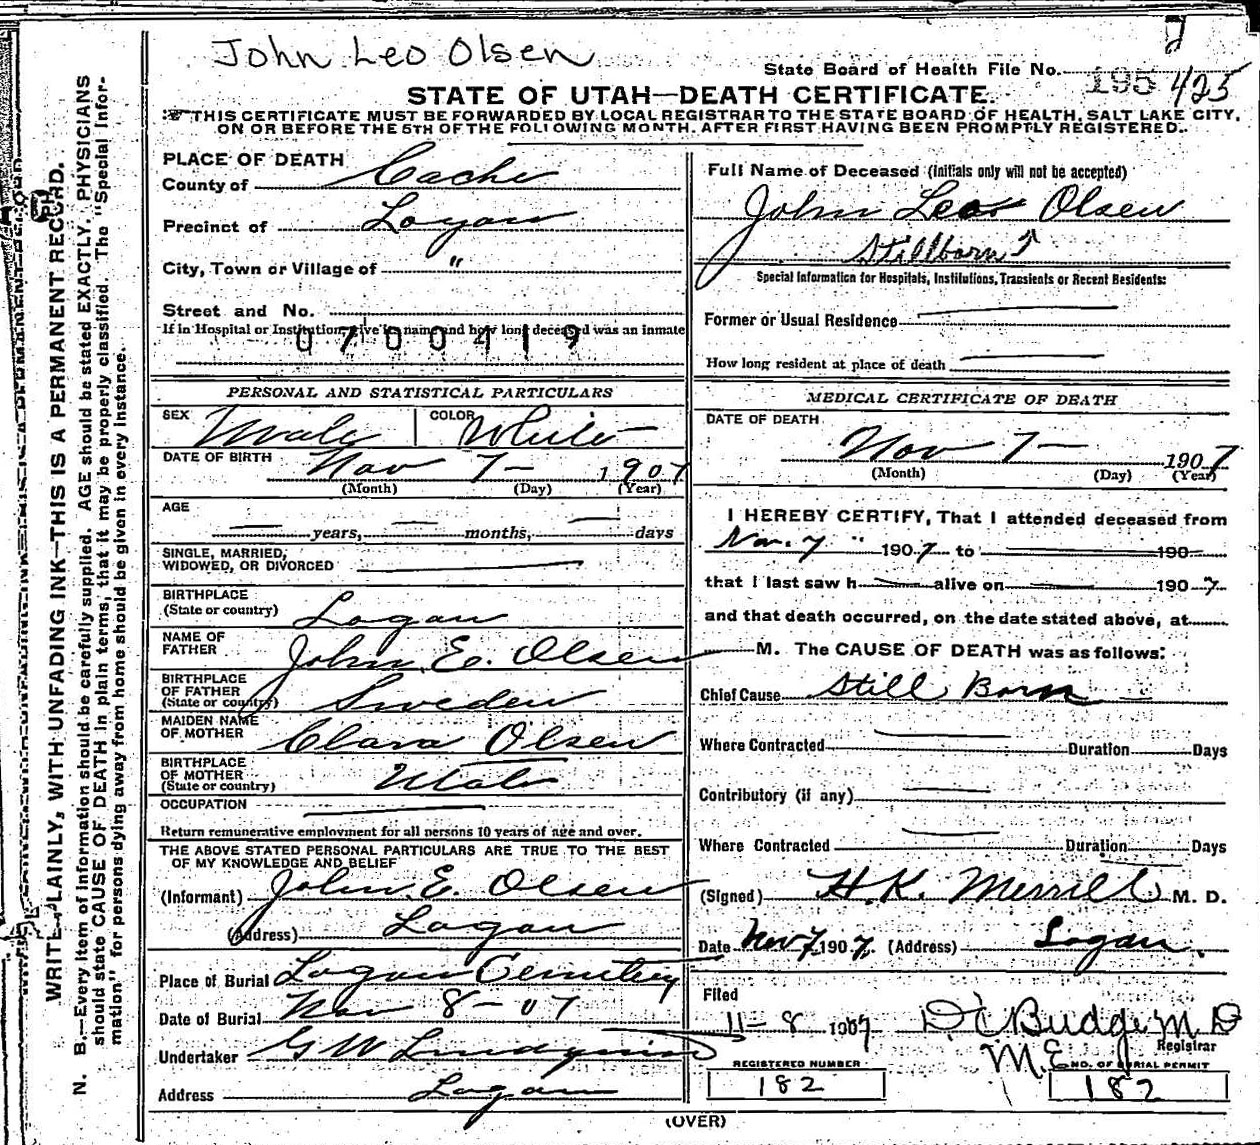 John Leo Olsen
State Board of Health File No. 195 425
STATE OF UTAH—DEATH CERTIFICATE.
THIS CERTIFICATE MUST BE FORWARDED BY LOCAL REGISTRAR TO THE STATE BOARD OF HEALTH, SALT LAKE CITY,
ON OR BEFORE THE 5TH OF THE FOLLOWING MONTH, AFTER FIRST HAVING BEEN PROMPTLY REGISTERED.
WRITE PLAINLY, WITH UNFADING INK—THIS IS A PERMANENT RECORD.
N. B.—Every item of information should be carefully supplied. AGE should be stated EXACTLY. PHYSICIANS
should state CAUSE OF DEATH in plain terms, that it may be properly classified. The "Special Infor-
mation" for persons dying away from home should be given in every instance.
PLACE OF DEATH
County of Cache
Precinct of Logan
City, Town or Village of "
Street and No.
If in Hospital or Institution, give its name and how long deceased was an inmate
0700419
PERSONAL AND STATISTICAL PARTICULARS
SEX Male COLOR White
DATE OF BIRTH Nov 7— 1907
(Month) (Day) (Year)
AGE
— years, — months, — days
SINGLE, MARRIED,
WIDOWED, OR DIVORCED —
BIRTHPLACE
(State or country) Logan
NAME OF
FATHER John E. Olsen
BIRTHPLACE
OF FATHER
(State or country) Sweden
MAIDEN NAME
OF MOTHER Clara Olsen
BIRTHPLACE
OF MOTHER
(State or country) Utah
OCCUPATION —
Return remunerative employment for all persons 10 years of age and over.
THE ABOVE STATED PERSONAL PARTICULARS ARE TRUE TO THE BEST
OF MY KNOWLEDGE AND BELIEF
(Informant) John E. Olsen
(Address) Logan
Place of Burial Logan Cemetery
Date of Burial Nov 8-07
Undertaker G W Lindquist
Address Logan
Full Name of Deceased (initials only will not be accepted)
John Leo Olsen
Stillborn
Special Information for Hospitals, Institutions, Transients or Recent Residents:
Former or Usual Residence —
How long resident at place of death —
MEDICAL CERTIFICATE OF DEATH
DATE OF DEATH
Nov 7— 1907
(Month) (Day) (Year)
I HEREBY CERTIFY, That I attended deceased from
Nov. 7 " 1907 to — 190
that I last saw h — alive on — 1907
and that death occurred, on the date stated above, at
— M. The CAUSE OF DEATH was as follows:
Chief Cause Still Born
Where Contracted — Duration Days
Contributory (if any) —
Where Contracted — Duration — Days
(Signed) H.K. Merrill M. D.
Date Nov 7, 1907. (Address) Logan.
Filed
11-8 1907 D C Budge M D
Registrar
M.E
REGISTERED NUMBER NO. OF BURIAL PERMIT
182 182
(OVER)